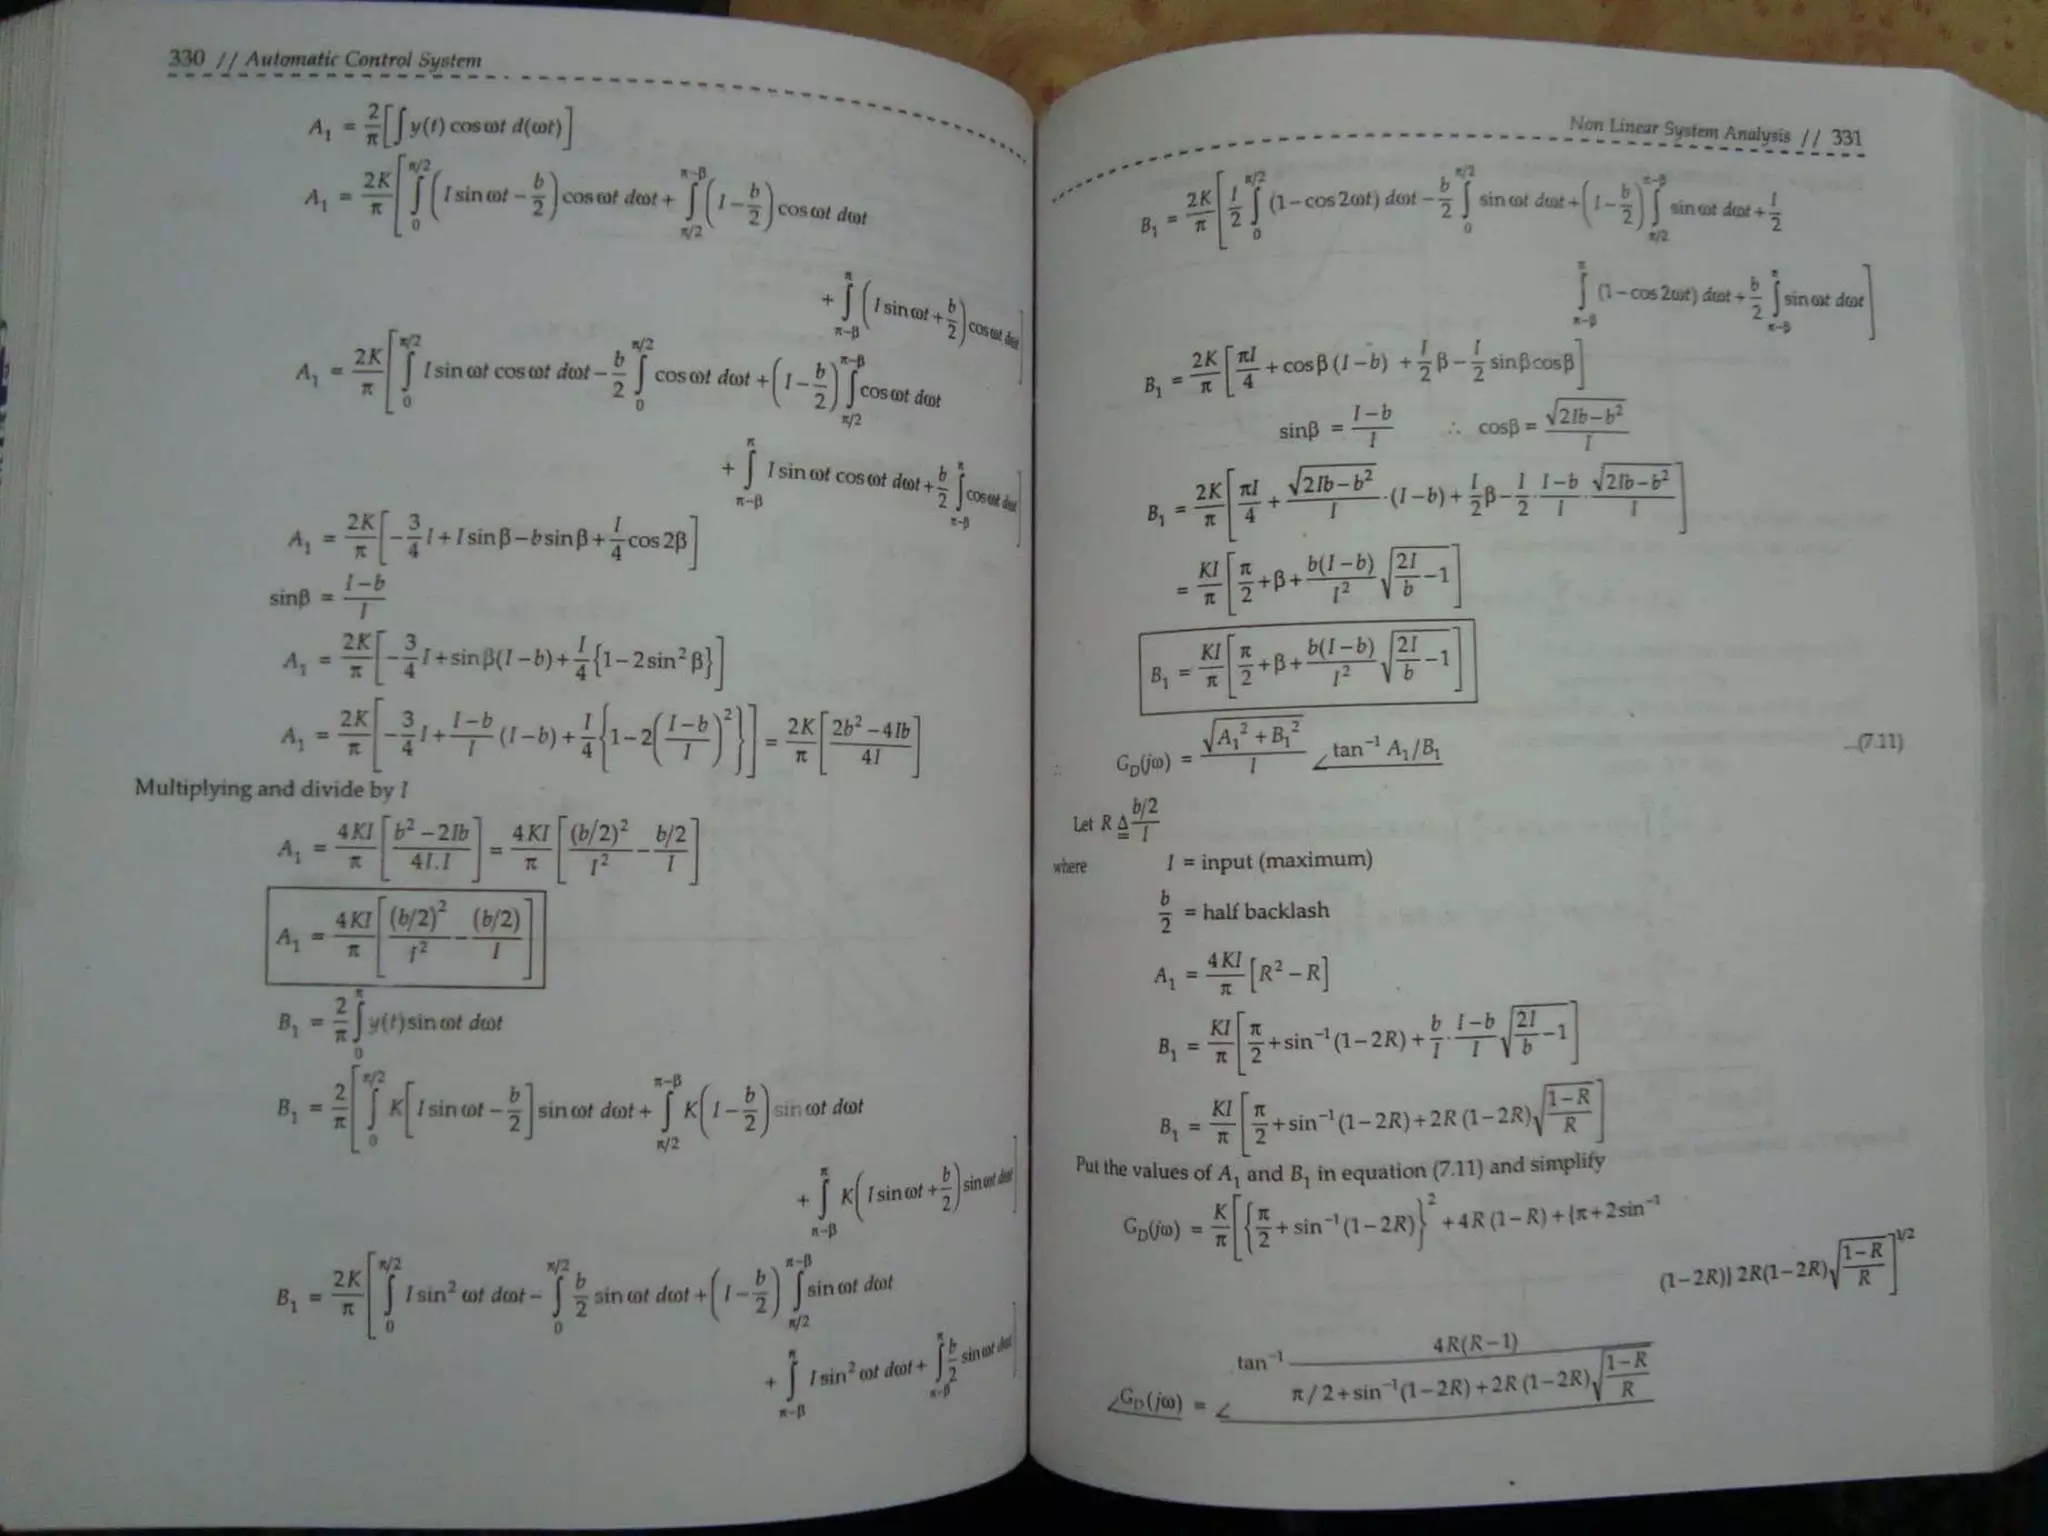 330 // Automatic Control System
A₁ = 2/π [∫ y(t) cos ωt d(ωt)]
A₁ = 2K/π [∫₀^{π/2} (I sin ωt − b/2) cos ωt dωt + ∫_{π/2}^{π−β} (I − b/2) cos ωt dωt
+ ∫_{π−β}^{π} (I sin ωt + b/2) cos ωt dωt]
A₁ = 2K/π [∫₀^{π/2} I sin ωt cos ωt dωt − b/2 ∫₀^{π/2} cos ωt dωt + (I − b/2) ∫_{π/2}^{π−β} cos ωt dωt
+ ∫_{π−β}^{π} I sin ωt cos ωt dωt + b/2 ∫_{π−β}^{π} cos ωt dωt]
A₁ = 2K/π [−3/4 I + I sin β − b sin β + I/4 cos 2β]
sinβ = (I−b)/I
A₁ = 2K/π [−3/4 I + sin β(I − b) + I/4 {1 − 2 sin² β}]
A₁ = 2K/π [−3/4 I + (I−b)/I (I − b) + I/4 {1 − 2((I−b)/I)²}] = 2K/π [(2b² − 4Ib)/4I]
Multiplying and divide by I
A₁ = 4KI/π [(b² − 2Ib)/4I.I] = 4KI/π [(b/2)²/I² − (b/2)/I]
A₁ = 4KI/π [(b/2)²/I² − (b/2)/I]
B₁ = 2/π ∫₀^π y(t) sin ωt dωt
B₁ = 2/π [∫₀^{π/2} K[I sin ωt − b/2] sin ωt dωt + ∫_{π/2}^{π−β} K(I − b/2) sin ωt dωt
+ ∫_{π−β}^{π} K(I sin ωt + b/2) sin ωt dωt]
B₁ = 2K/π [∫₀^{π/2} I sin² ωt dωt − ∫₀^{π/2} b/2 sin ωt dωt + (I − b/2) ∫_{π/2}^{π−β} sin ωt dωt
+ ∫_{π−β}^{π} I sin² ωt dωt + ∫_{π−β}^{π} b/2 sin ωt dωt]
Non Linear System Analysis // 331
B₁ = 2K/π [I/2 ∫₀^{π/2} (1 − cos 2ωt) dωt − b/2 ∫₀^{π/2} sin ωt dωt + (I − b/2) ∫_{π/2}^{π−β} sin ωt dωt + I/2
∫_{π−β}^{π} (1 − cos 2ωt) dωt + b/2 ∫_{π−β}^{π} sin ωt dωt]
B₁ = 2K/π [πI/4 + cos β (I − b) + I/2 β − I/2 sin β cos β]
sinβ = (I−b)/I ∴ cosβ = √(2Ib−b²)/I
B₁ = 2K/π [πI/4 + √(2Ib−b²)/I ·(I − b) + I/2 β − I/2 · (I−b)/I · √(2Ib−b²)/I]
= KI/π [π/2 + β + b(I−b)/I² √(2I/b − 1)]
B₁ = KI/π [π/2 + β + b(I−b)/I² √(2I/b − 1)]
∴ G_D(jω) = √(A₁² + B₁²)/I ∠tan⁻¹ A₁/B₁ ...(7.11)
Let R ≜ (b/2)/I
where I = input (maximum)
b/2 = half backlash
A₁ = 4KI/π [R² − R]
B₁ = KI/π [π/2 + sin⁻¹(1 − 2R) + b/I · (I−b)/I √(2I/b − 1)]
B₁ = KI/π [π/2 + sin⁻¹(1 − 2R) + 2R (1 − 2R) √((1−R)/R)]
Put the values of A₁ and B₁ in equation (7.11) and simplify
G_D(jω) = K/π [{π/2 + sin⁻¹(1 − 2R)}² + 4R (1 − R) + {π + 2 sin⁻¹
(1 − 2R)} 2R(1 − 2R) √((1−R)/R)]^{1/2}
∠G_D(jω) = ∠ tan⁻¹ 4R(R−1) / (π/2 + sin⁻¹(1 − 2R) + 2R (1 − 2R) √((1−R)/R))